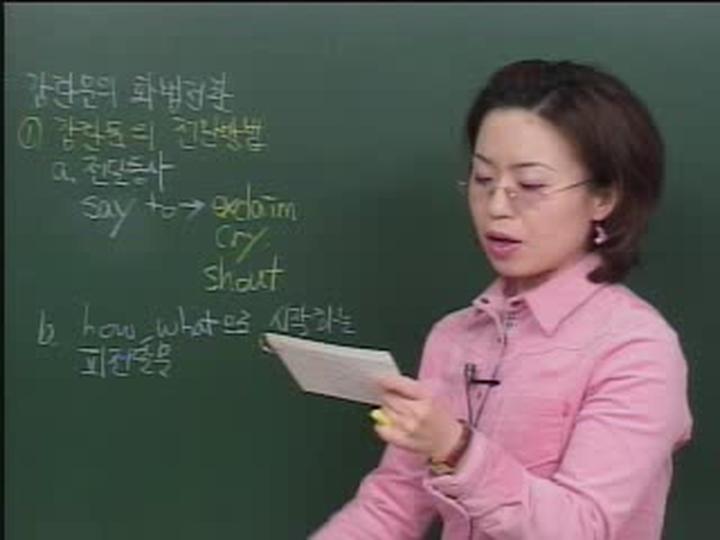 감탄문의 화법전환
① 감탄문의 전달방법
a. 전달동사
say to → exclaim
cry
shout
b. how, what으로 시작하는
피전달문을